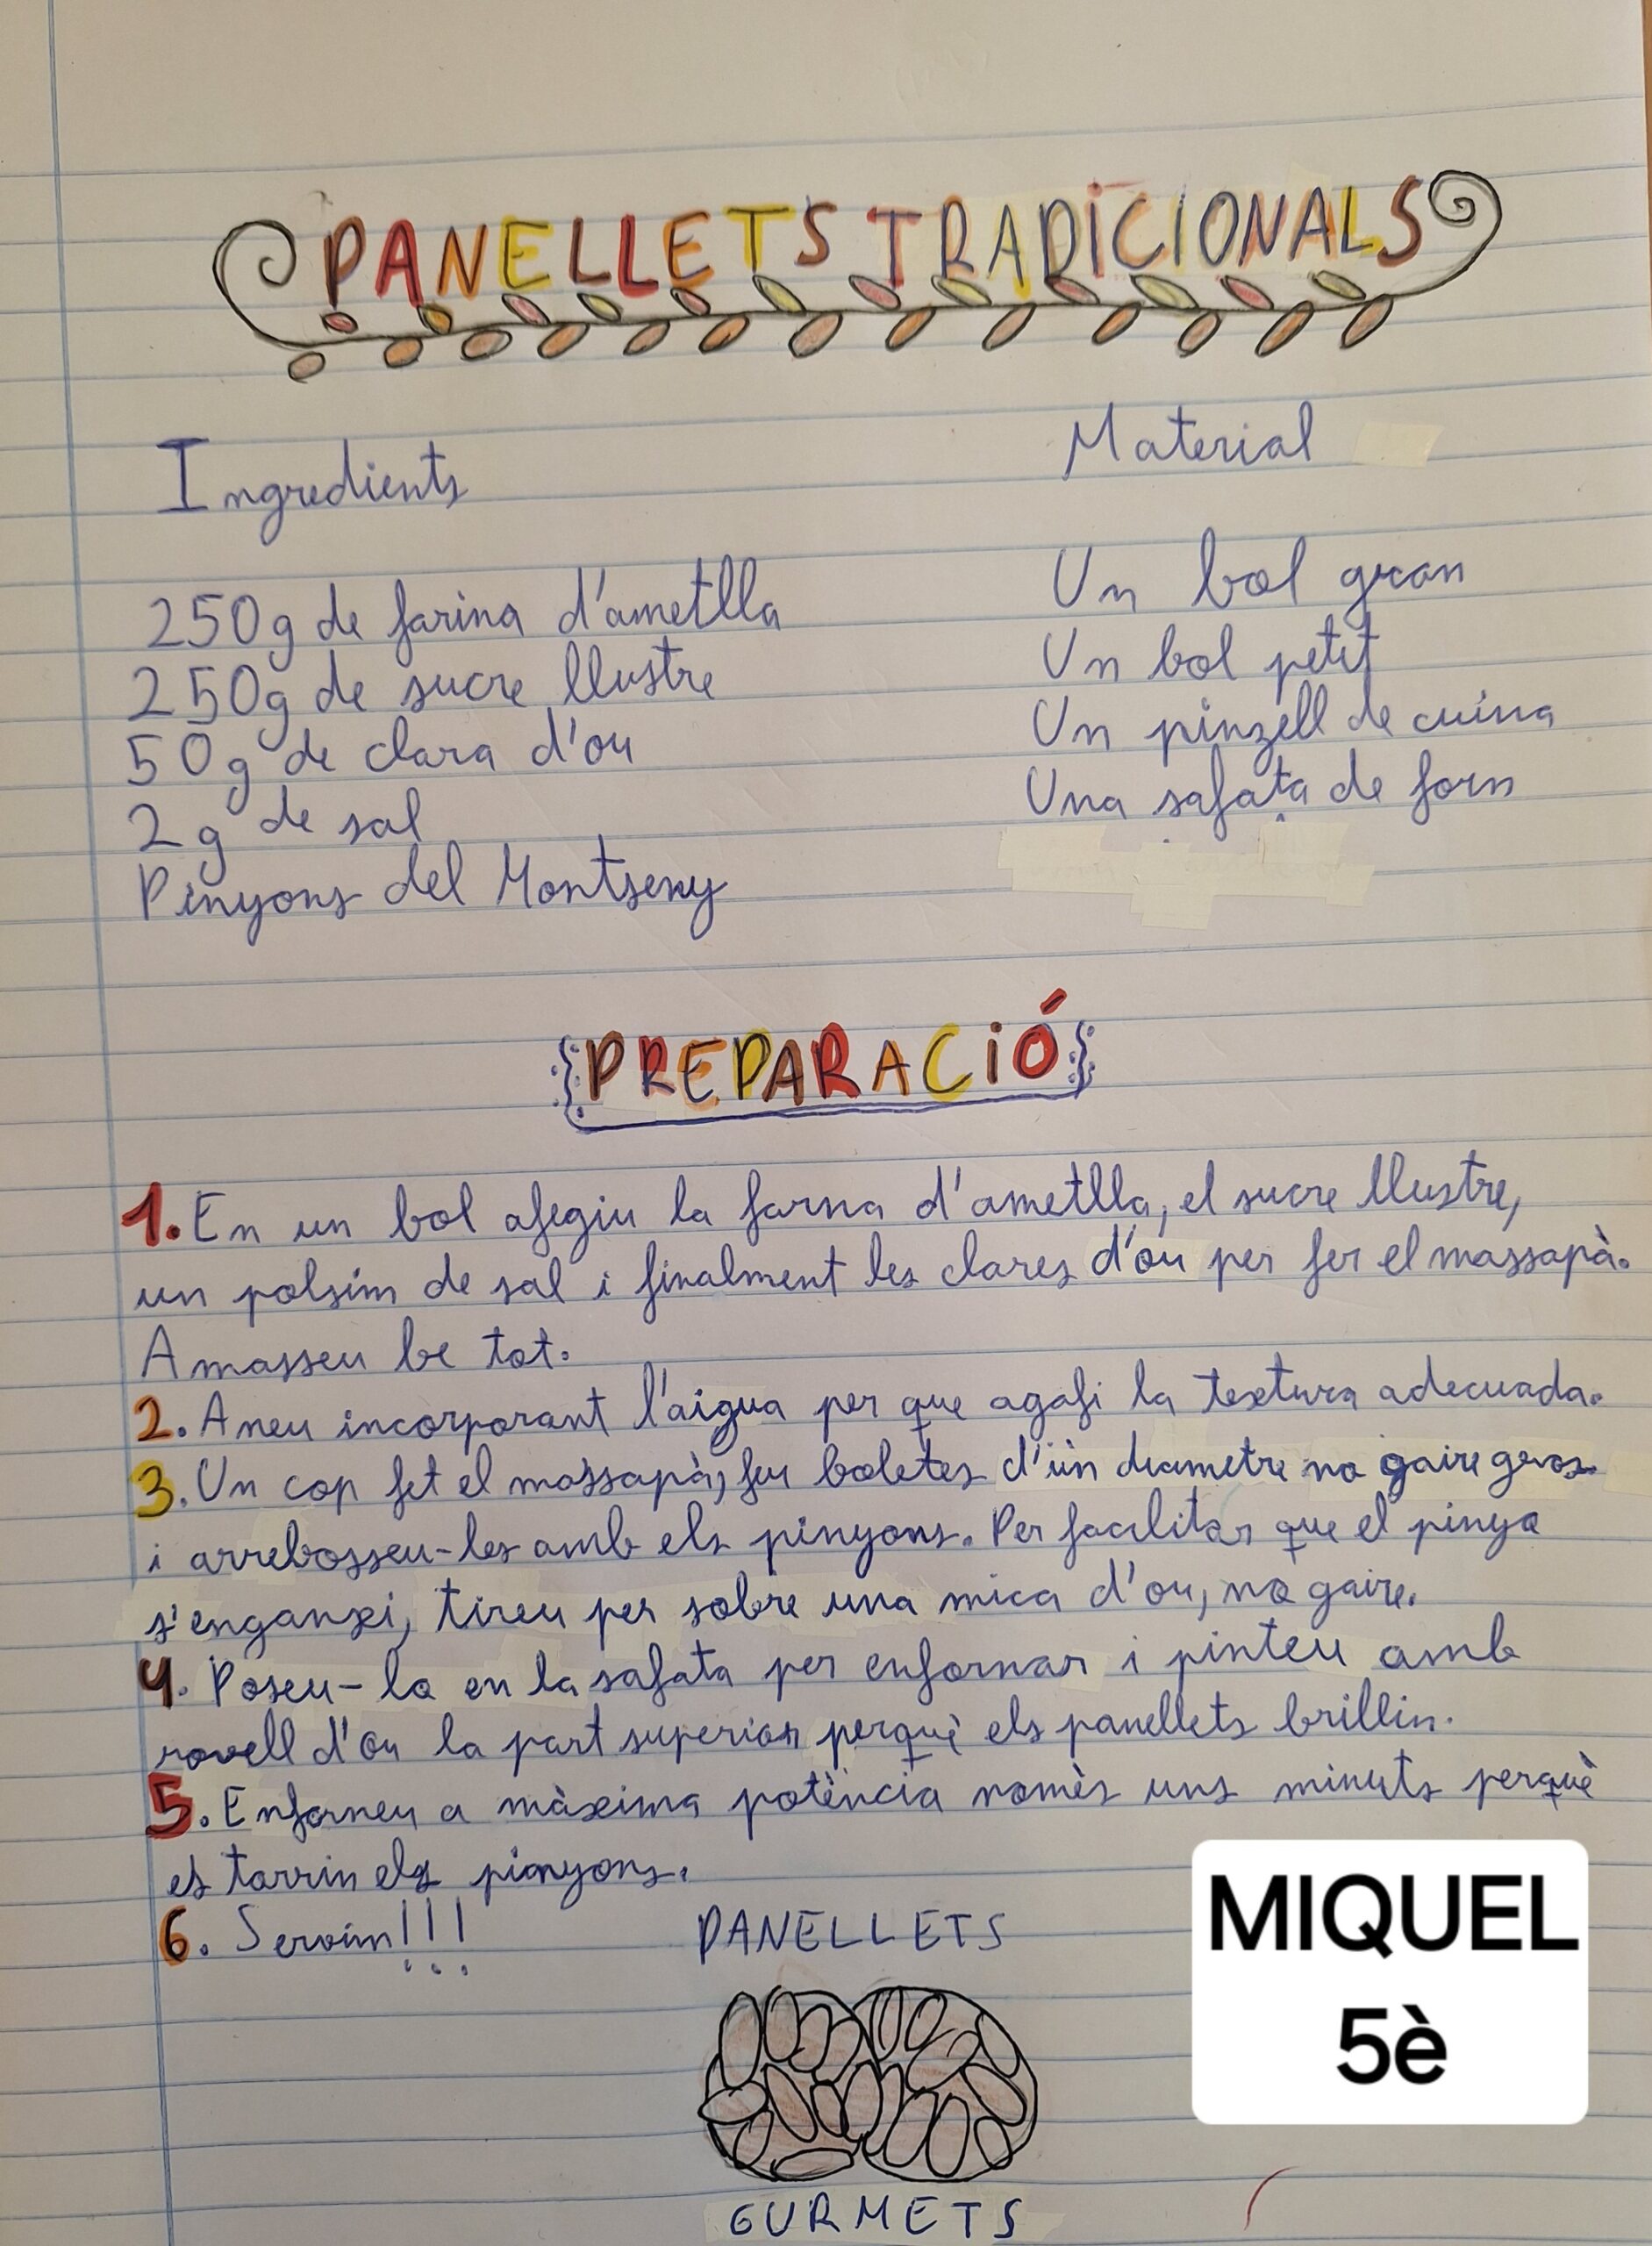 PANELLETS TRADICIONALS
Ingredients
250g de farina d'ametlla
250g de sucre llustre
50g de clara d'ou
2g de sal
Pinyons del Montseny
Material
Un bol gran
Un bol petit
Un pinzell de cuina
Una safata de forn
PREPARACIÓ
1. En un bol afegiu la farna d'ametlla, el sucre llustre,
un polsim de sal i finalment les clares d'ou per fer el massapà.
Amasseu be tot.
2. Aneu incorporant l'aigua per que agafi la textura adecuada.
3. Un cop fet el massapà, feu boletes d'un diametre no gaire gros
i arrebosseu-les amb els pinyons. Per facilitar que el pinyo
s'enganxi, tireu per sobre una mica d'ou, no gaire.
4. Poseu-lo en la safata per enfornar i pinteu amb
rovell d'ou la part superior perquè els panellets brillin.
5. Enforneu a màxima potència nomès uns minuts perquè
es torrin els pinyons.
6. Servim!!!
PANELLETS
GURMETS
MIQUEL
5è